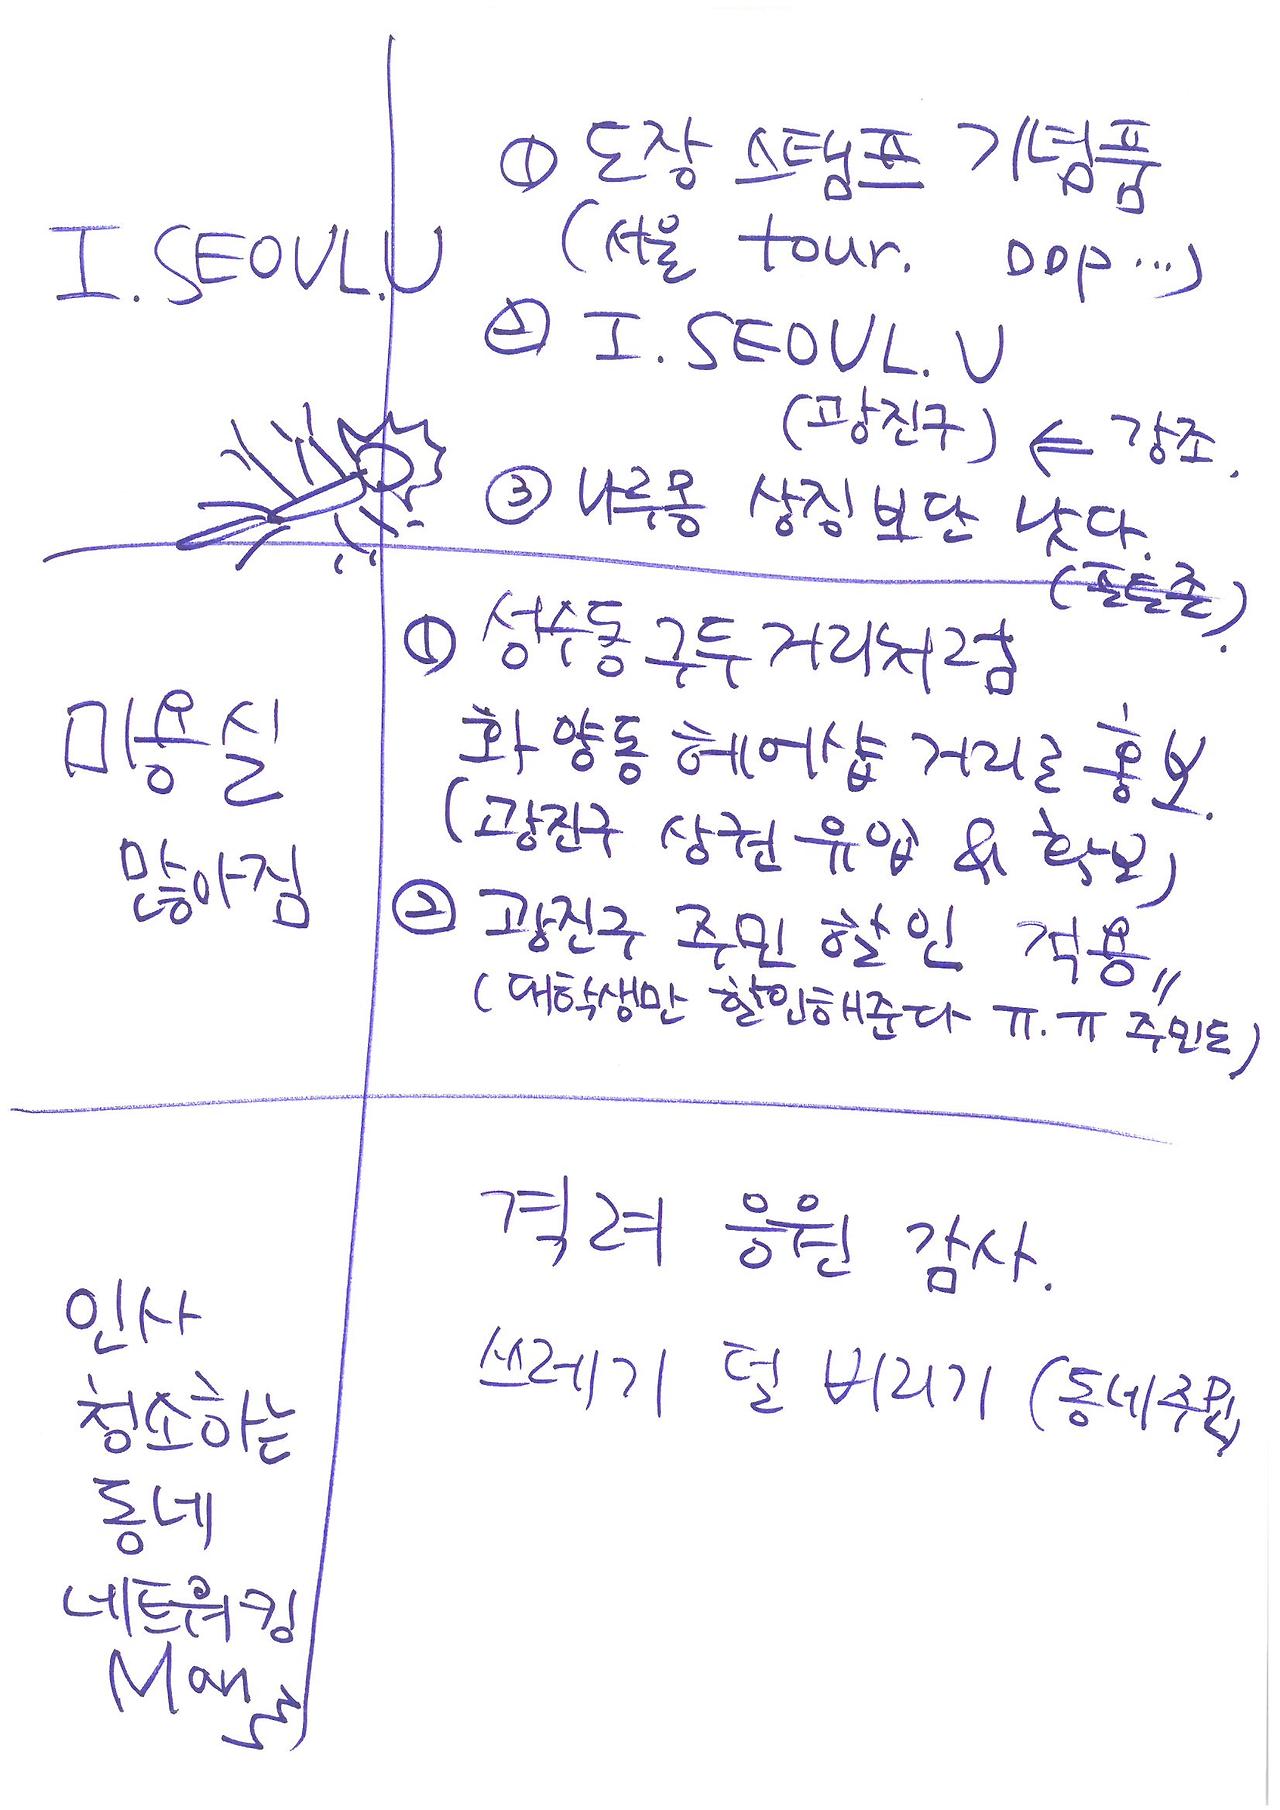 I.SEOUL.U
① 도장 스탬프 기념품
(서울 tour. DDP...)
② I.SEOUL.U
(광진구) ← 강조.
③ 나루몽 상징보단 낫다.
(포토존)
미용실
많아짐
① 성수동 구두거리처럼
화양동 헤어샵 거리로 홍보.
(광진구 상권 유입 & 확보)
② 광진구 주민 할인 적용"
(대학생만 할인해준다 ㅠ.ㅠ 주민도)
인사
청소하는
동네
네트워킹
Man
격려 응원 감사.
쓰레기 덜 버리기 (동네주민)